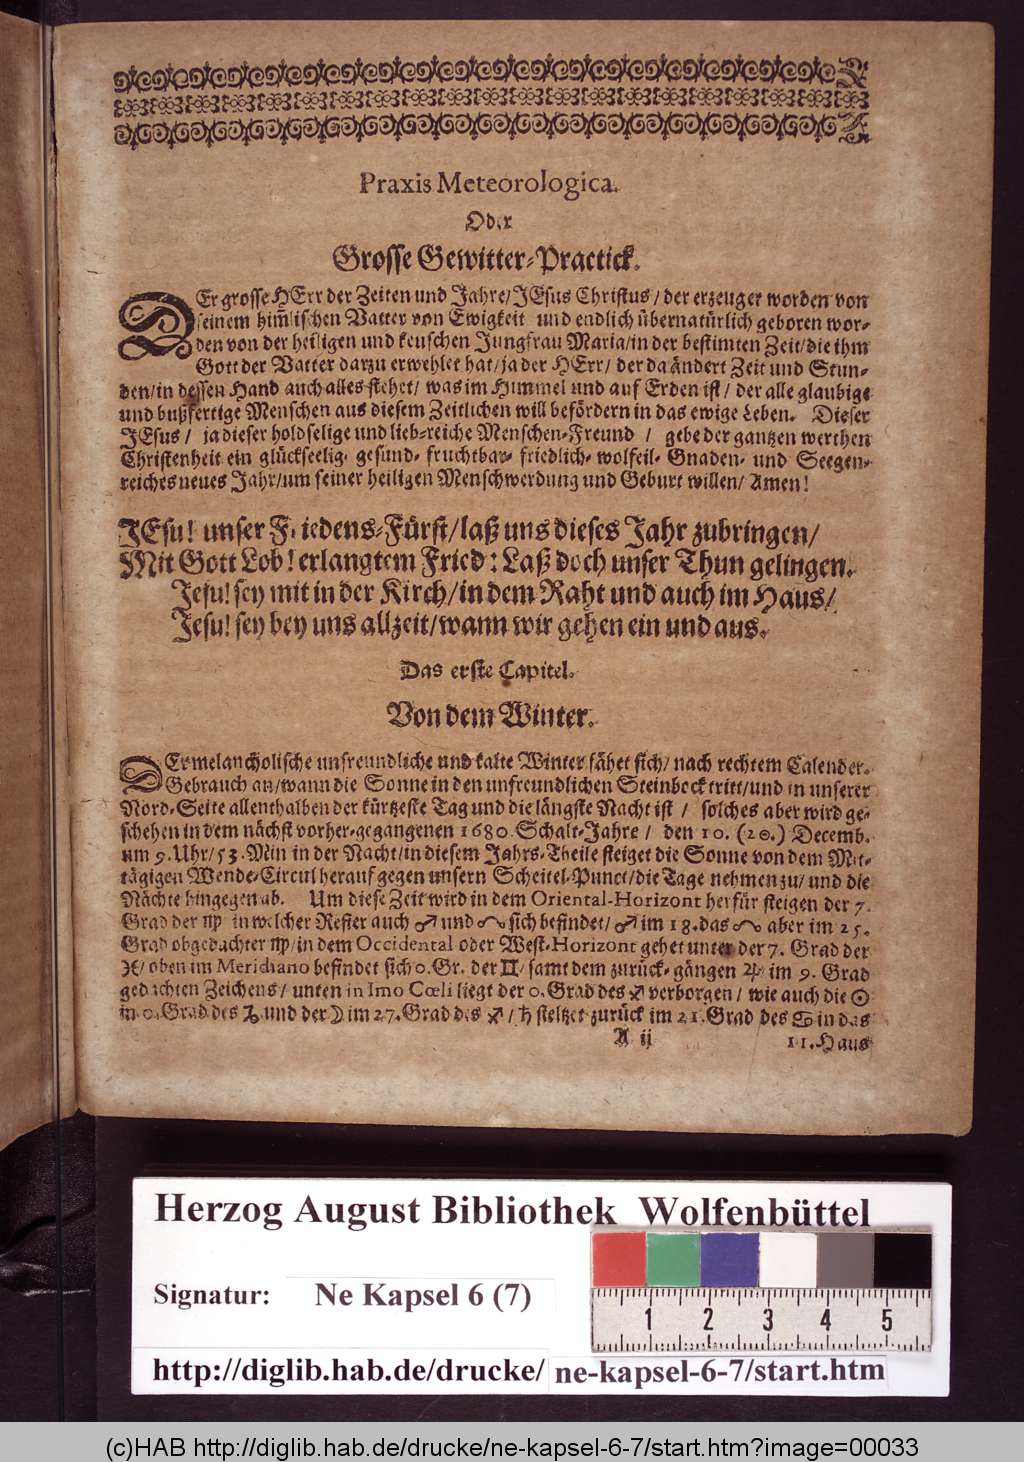 Praxis Meteorologica.
Oder
Grosse Gewitter-Practick.
DEr grosse HErr der Zeiten und Jahre/ JEsus Christus/ der erzeuget worden von
seinem himlischen Vatter von Ewigkeit und endlich übernatürlich geboren wor-
den von der heiligen und keuschen Jungfrau Maria/ in der bestimten Zeit/ die ihm
Gott der Vatter darzu erwehlet hat/ ja der HErr/ der da ändert Zeit und Stun-
den/ in dessen Hand auch alles stehet/ was im Himmel und auf Erden ist/ der alle glaubige
und bußfertige Menschen aus diesem Zeitlichen will befördern in das ewige Leben. Dieser
JEsus/ ja dieser holdselige und lieb-reiche Menschen-Freund / gebe der gantzen werthen
Christenheit ein glückseelig- gesund- fruchtbar- friedlich- wolfeil- Gnaden- und Seegen-
reiches neues Jahr/ um seiner heiligen Menschwerdung und Geburt willen/ Amen!
JEsu! unser Friedens-Fürst/ laß uns dieses Jahr zubringen/
Mit Gott Lob! erlangtem Fried: Laß doch unser Thun gelingen.
Jesu! sey mit in der Kirch/ in dem Raht und auch im Haus/
Jesu! sey bey uns allzeit/ wann wir gehen ein und aus.
Das erste Capitel.
Von dem Winter.
DEr melancholische unfreundliche und kalte Winter fähet sich/ nach rechtem Calender-
Gebrauch an/ wann die Sonne in den unfreundlichen Steinbock tritt/ und in unserer
Nord-Seite allenthalben der kürtzeste Tag und die längste Nacht ist / solches aber wird ge-
schehen in dem nächst vorher-gegangenen 1680. Schalt-Jahre / den 10. (20.) Decemb.
um 9. Uhr/ 53. Min in der Nacht/ in diesem Jahrs-Theile steiget die Sonne von dem Mit-
tägigen Wende-Circul herauf gegen unsern Scheitel-Punct/ die Tage nehmen zu/ und die
Nächte hingegen ab. Um diese Zeit wird in dem Oriental-Horizont herfür steigen der 7.
Grad der ♍ in welcher Refier auch ♂ und ☊ sich befindet/ ♂ im 18. das ☊ aber im 25.
Grad obgedachter ♍/ in dem Occidental oder West-Horizont gehet unter der 7. Grad der
♓/ oben im Meridiano befindet sich 0. Gr. der ♊/ samt dem zurück-gängen ♃ im 9. Grad
gedachten Zeichens/ unten in Imo Cœli liegt der 0. Grad des ♐ verborgen / wie auch die ☉
in 0. Grad des ♑ und der ☽ im 27. Grad des ♐ / ♄ steltzet zurück im 21. Grad des ♋ in das
A ij 11. Haus
Herzog August Bibliothek Wolfenbüttel
Signatur: Ne Kapsel 6 (7)
1 2 3 4 5
http://diglib.hab.de/drucke/ ne-kapsel-6-7/start.htm
(c)HAB http://diglib.hab.de/drucke/ne-kapsel-6-7/start.htm?image=00033